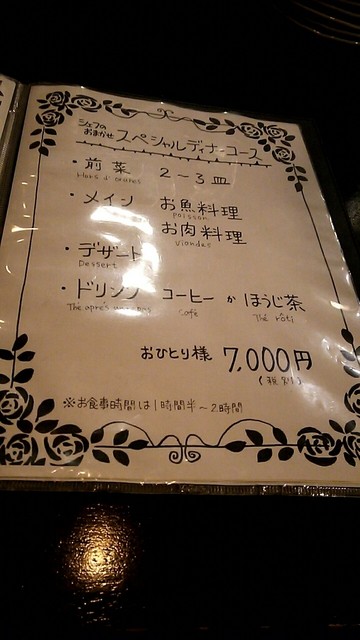 シェフの
おまかせ スペシャルディナーコース
・前菜 2～3皿
Hors d'œuvres
・メイン お魚料理
poisson
お肉料理
viandes
・デザート
Dessert
・ドリンク コーヒー か ほうじ茶
Café Thé rôti
おひとり様 7,000円
(税別)
※お食事時間は1時間半～2時間